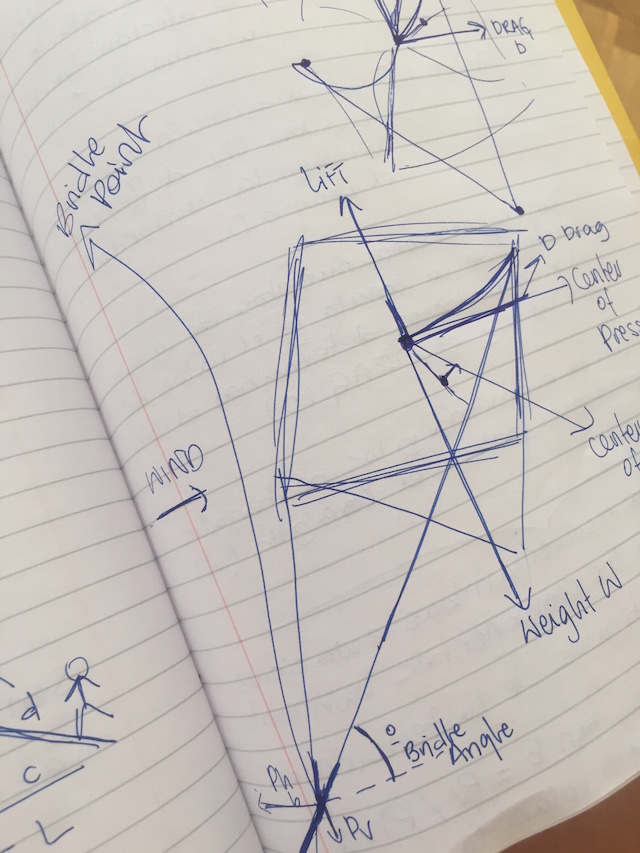 DRAG
D
Lift
Bridle
Point
D Drag
Center
of
Press
Center
of
WIND
Weight W
d
c
L
Bridle
Angle
Ph
Pv